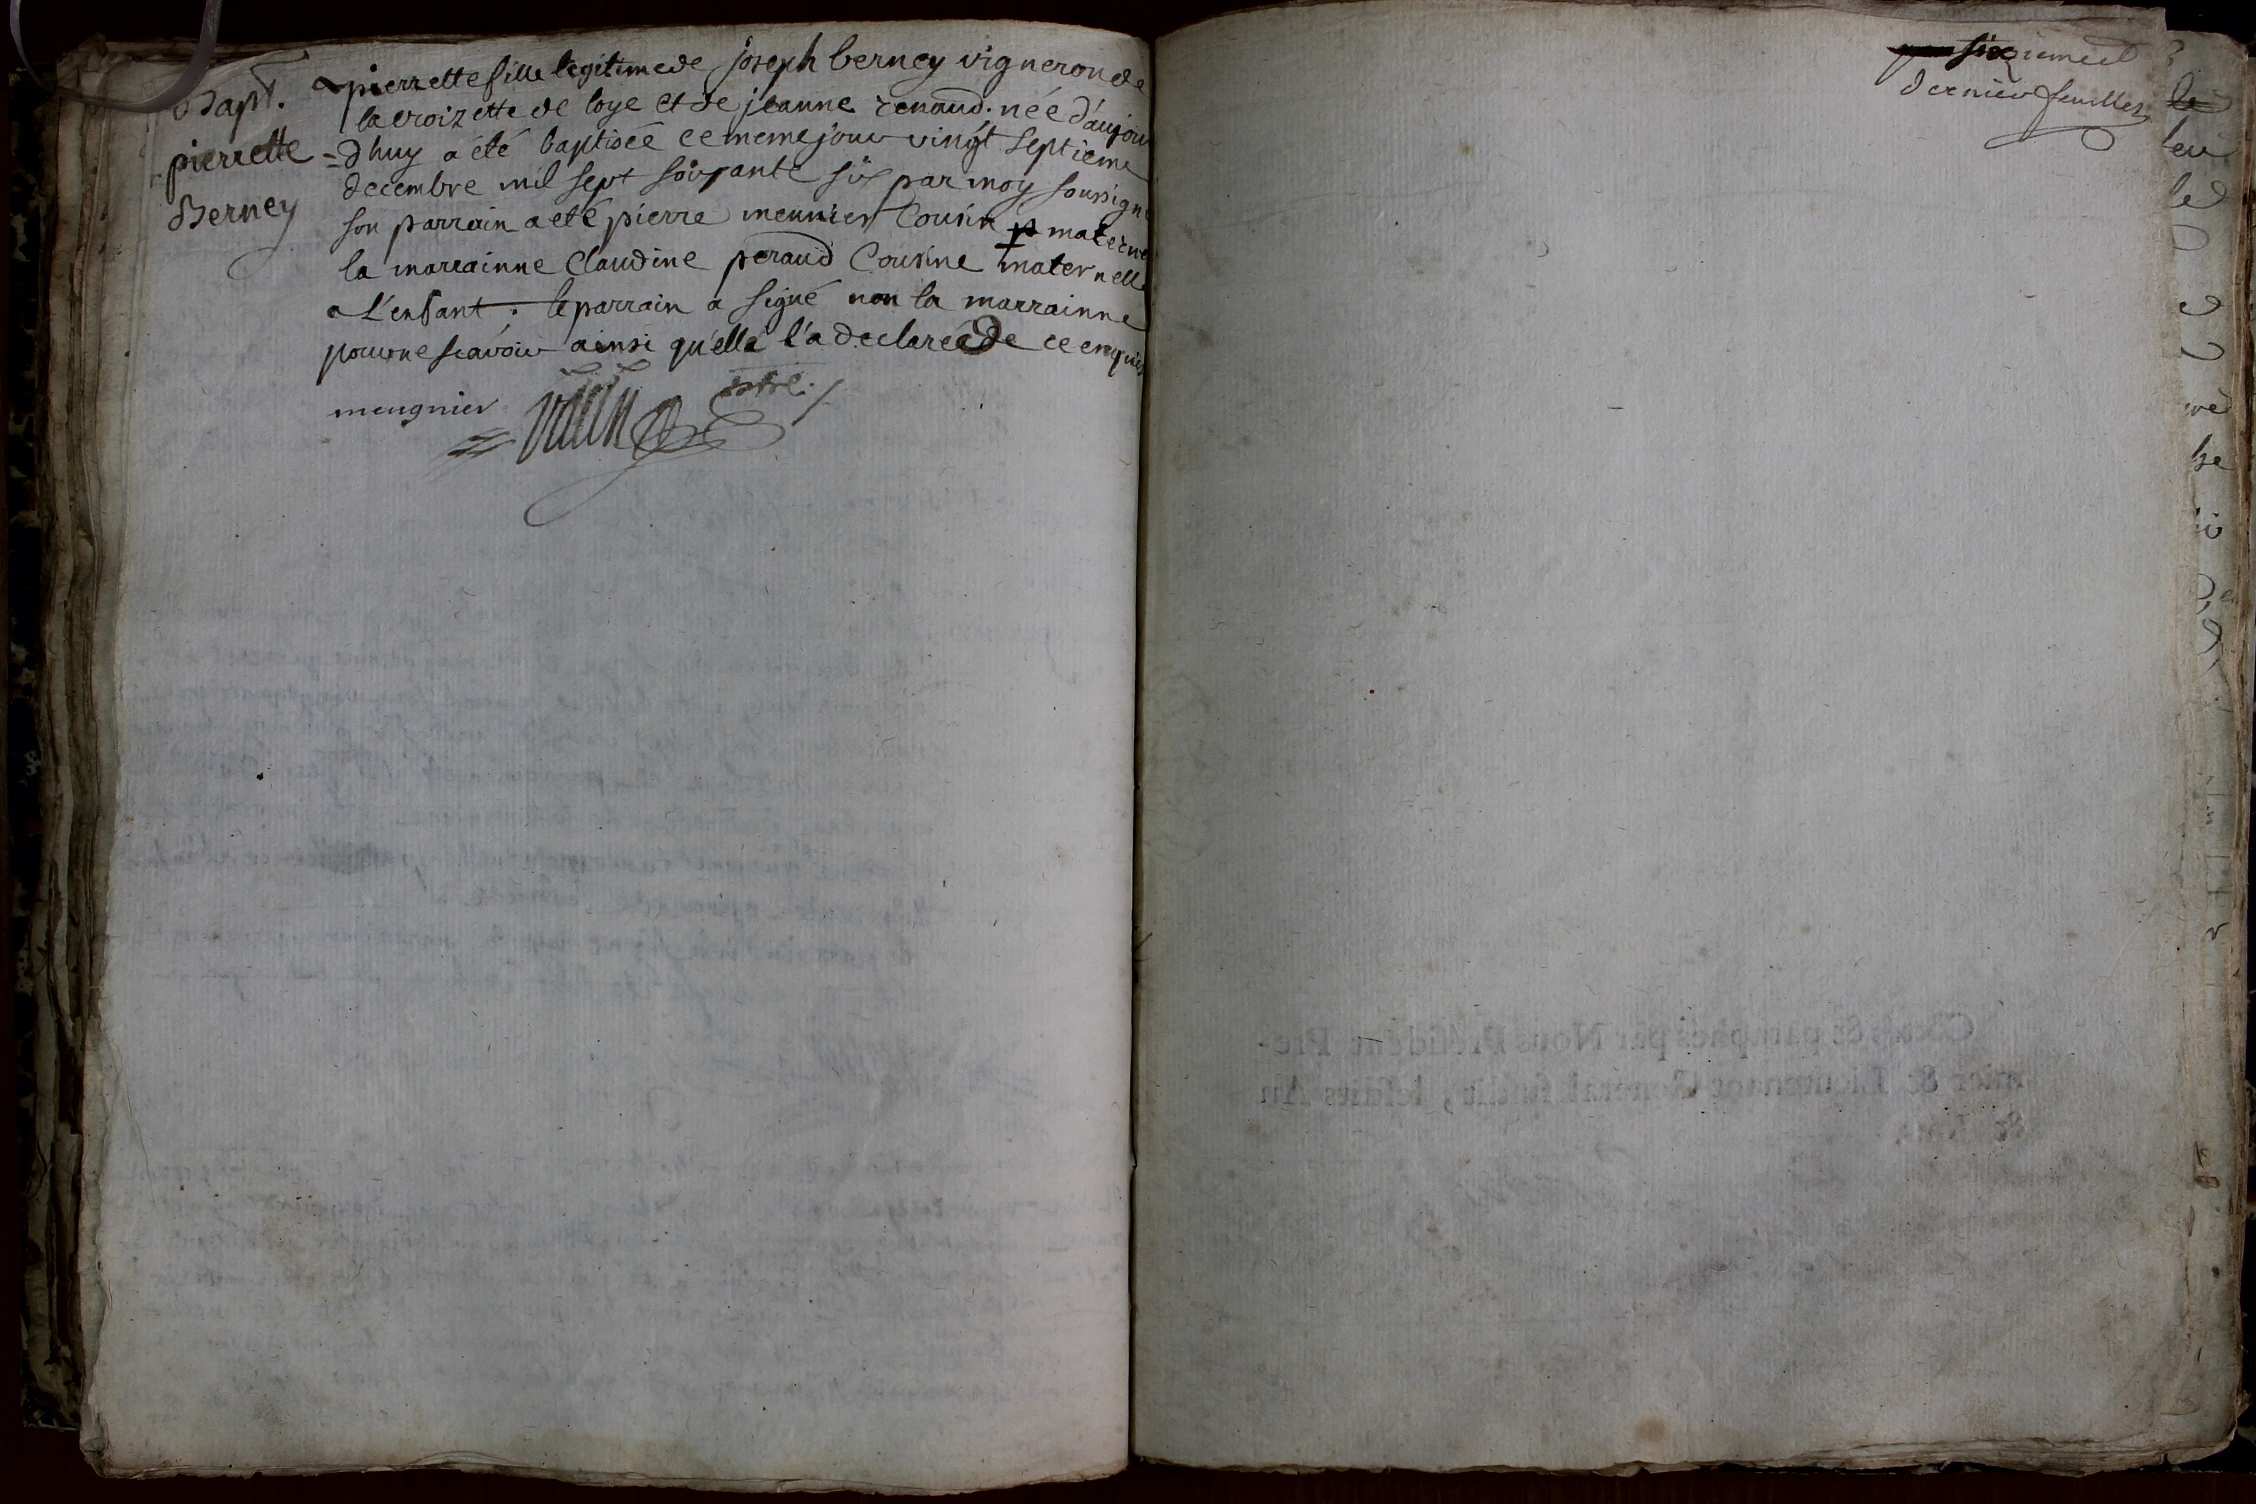 Bapt.
pierrette
Berney
pierrette fille legitime de joseph berney vigneron de
la croizette de loye et de jeanne renaud. née d'aujour
= d'huy a été baptisée ce meme jour vingt septieme
decembre mil sept soixante six par moy soussigné
son parrain a eté pierre meunier Cousin maternel
la marrainne Claudine peraud Cousine maternelle
a L'enfant. le parrain a signé non la marrainne
pour ne scavoir ainsi qu'elle l'a declaree de ce enquis
meugnier
ptre./.
sixiement
dernier feuillet
Cottés & paraphés par Nous Président Pre-
mier & Lieutenant Général susdit, lesdits An
& jour.